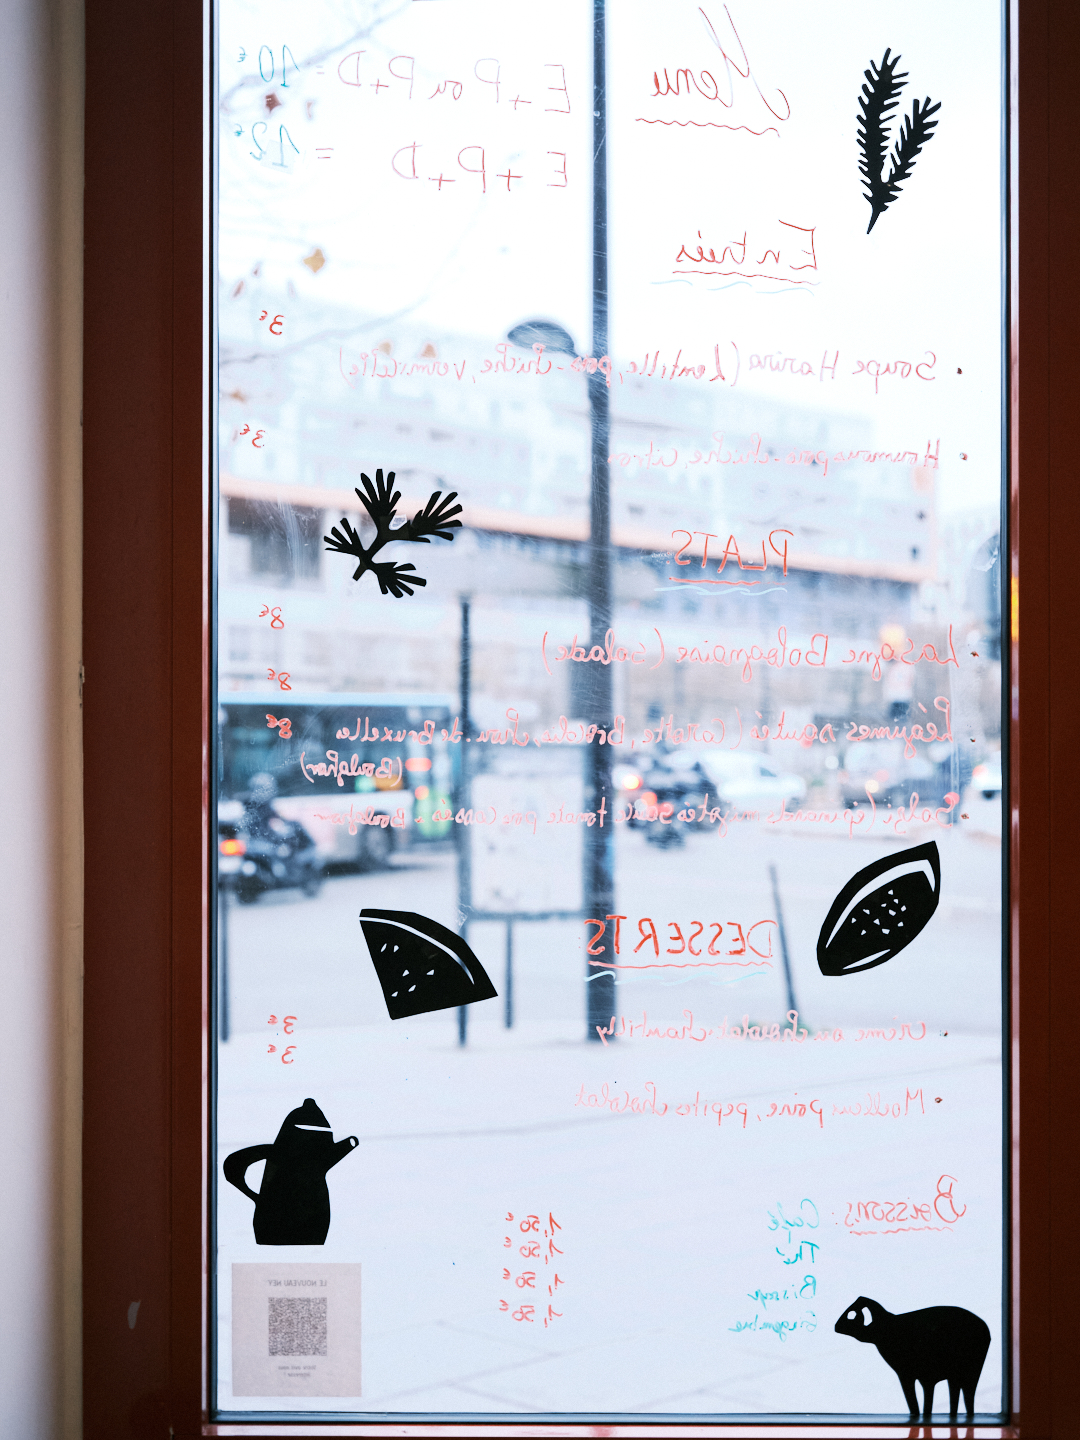 Menu
E+P ou P+D = 10€
E+P+D = 12€
Entrées
• Soupe Harira (Lentille, pois-chiche, vermicelle) 3€
• Houmous pois-chiche, citron 3€
PLATS
• Lasagne Bolognaise (salade) 8€
• Légumes sautés (Carotte, Brocolie, chou de Bruxelles 8€
(Boulghour)
• (épinards tomate pois cassés 8€
DESSERTS:
• Crème au chocolat chantilly 3€
• Moelleux poire, pepite chocolat 3€
Boissons: Café 1,50€
Thé 1,50€
Bissap 1,50€
Gingembre 1,50€
LE NOUVEAU MEY